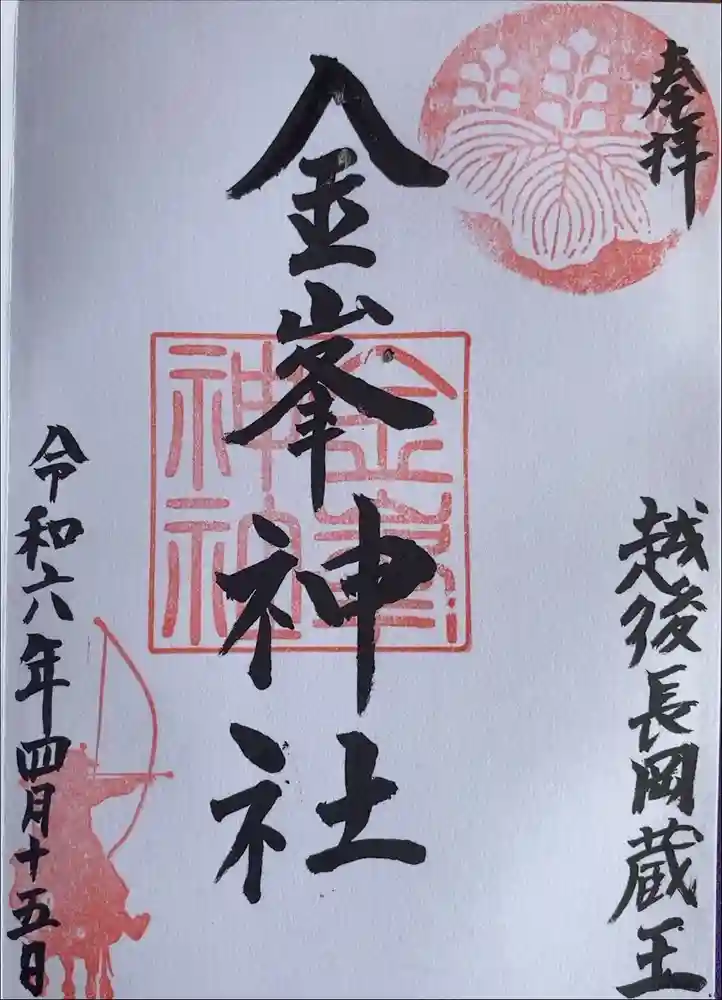 奉拝
越後長岡蔵王
金峯神社
金峯
神社
令和六年四月十五日